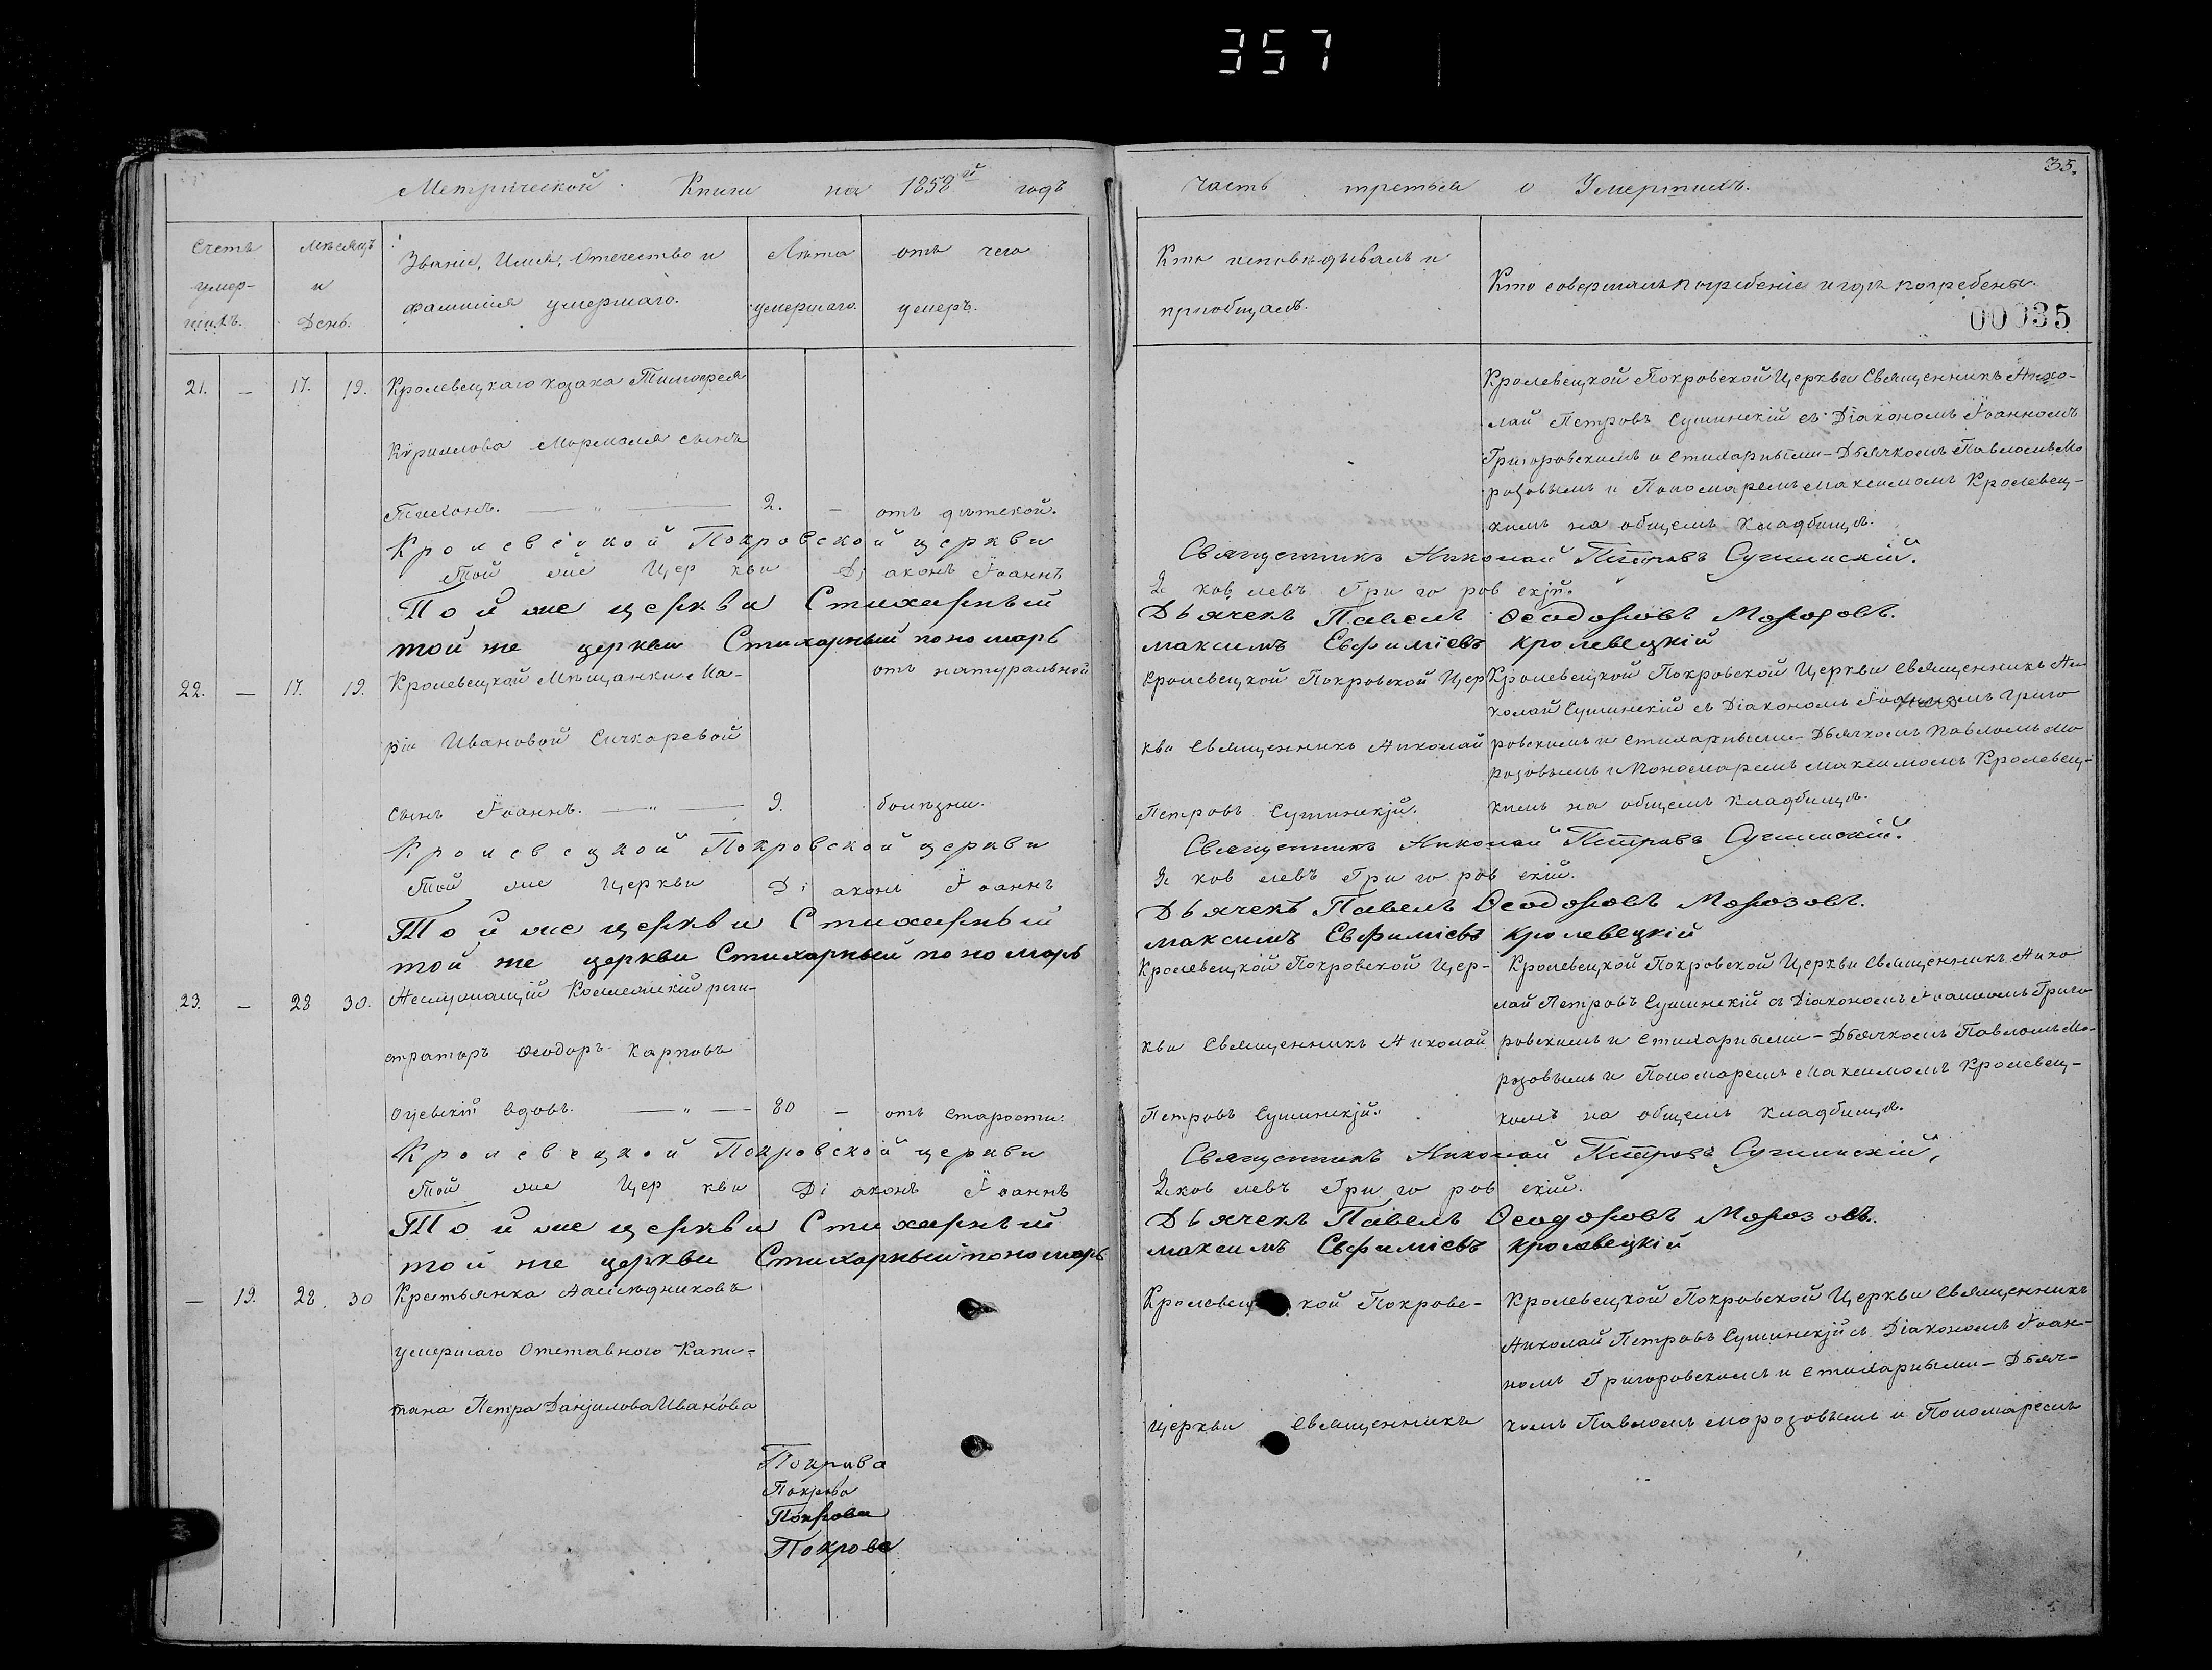 357
35.
Метрической Книги на 1858й годъ
Часть третья о Умершихъ.
Счетъ умер-шихъ.
Мѣсяцъ и День.
Званіе, Имя, Отечество и фамилія умершаго.
Лѣта умершаго.
отъ чего умеръ.
Кто исповѣдывалъ и пріобщалъ.
Кто совершалъ погребеніе и гдѣ погребены.
00035
21. — 17. 19. Кролевецкаго козака Тимофея
Курилова Мормаля сынъ
Тихонъ. — „ — 2. — отъ дѣтской.
Кролевецкой Покровской Церкви Священникъ Нико-
лай Петровъ Сушинскій съ Діакономъ Іоанномъ
Григоровскимъ и Стихарными – Дьячкомъ Павломъ Мо
розовымъ и Пономаремъ Максимомъ Кролевец-
кимъ на общемъ кладбищѣ.
Кролевецкой Покровской церкви Священникъ Николай Петровъ Сушинскій.
Той же Церкви Діаконъ Іоаннъ Яковлевъ Григоровскій.
Той же церкви Стихарный Дьячекъ Павелъ Ѳеодоровъ Морозовъ.
той же церкви Стихарный пономарь максимъ Евфиміевъ кролевецкій
22. — 17. 19. Кролевецкой Мѣщанки Ма-
ріи Ивановой Сичкаревой
сынъ Іоаннъ. — „ — 9.
отъ натуральной
болѣзни.
Кролевецкой Покровской Цер
кви Священникъ Николай
Петровъ Сушинскій.
Кролевецкой Покровской Церкви Священникъ Ни
колай Сушинскій съ Діакономъ Іоанномъ Григо
ровскимъ и Стихарными – Дьячкомъ Павломъ Мо
розовымъ и Пономаремъ Максимомъ Кролевец-
кимъ на общемъ кладбищѣ.
Кролевецкой Покровской церкви Священникъ Николай Петровъ Сушинскій.
Той же Церкви Діаконъ Іоаннъ Яковлевъ Григоровскій.
Той же церкви Стихарный Дьячекъ Павелъ Ѳеодоровъ Морозовъ.
той же церкви Стихарный пономарь максимъ Евфиміевъ кролевецкій
23. — 28 30. Неслужащій Коллежскій реги-
страторъ Ѳеодоръ Карповъ
Огіевскій вдовъ. — „ — 80 — отъ старости.
Кролевецкой Покровской Цер-
кви Священникъ Николай
Петровъ Сушинскій.
Кролевецкой Покровской Церкви Священникъ Нико
лай Петровъ Сушинскій съ Діакономъ Іоанномъ Григо
ровскимъ и Стихарными – Дьячкомъ Павломъ Мо-
розовымъ и Пономаремъ Максимомъ Кролевец-
кимъ на общемъ кладбищѣ.
Кролевецкой Покровской церкви Священникъ Николай Петровъ Сушинскій,
Той же Церкви Діаконъ Іоаннъ Яковлевъ Григоровскій.
Той же церкви Стихарный Дьячекъ Павелъ Ѳеодоровъ Морозовъ.
той же церкви Стихарный пономарь максимъ Евфиміевъ кролевецкій
— 19. 28. 30 Крестьянка Наслѣдниковъ
умершаго Отставного Капи-
тана Петра Данилова Иванова
Кролевецкой Покровс-
Церкви Священникъ
Кролевецкой Покровской Церкви Священникъ
Николай Петровъ Сушинскій съ Діакономъ Іоан-
номъ Григоровскимъ и Стихарными – Дьяч-
комъ Павломъ Морозовымъ и Пономаремъ
Покрова
Покрова
Покрова
Покрова